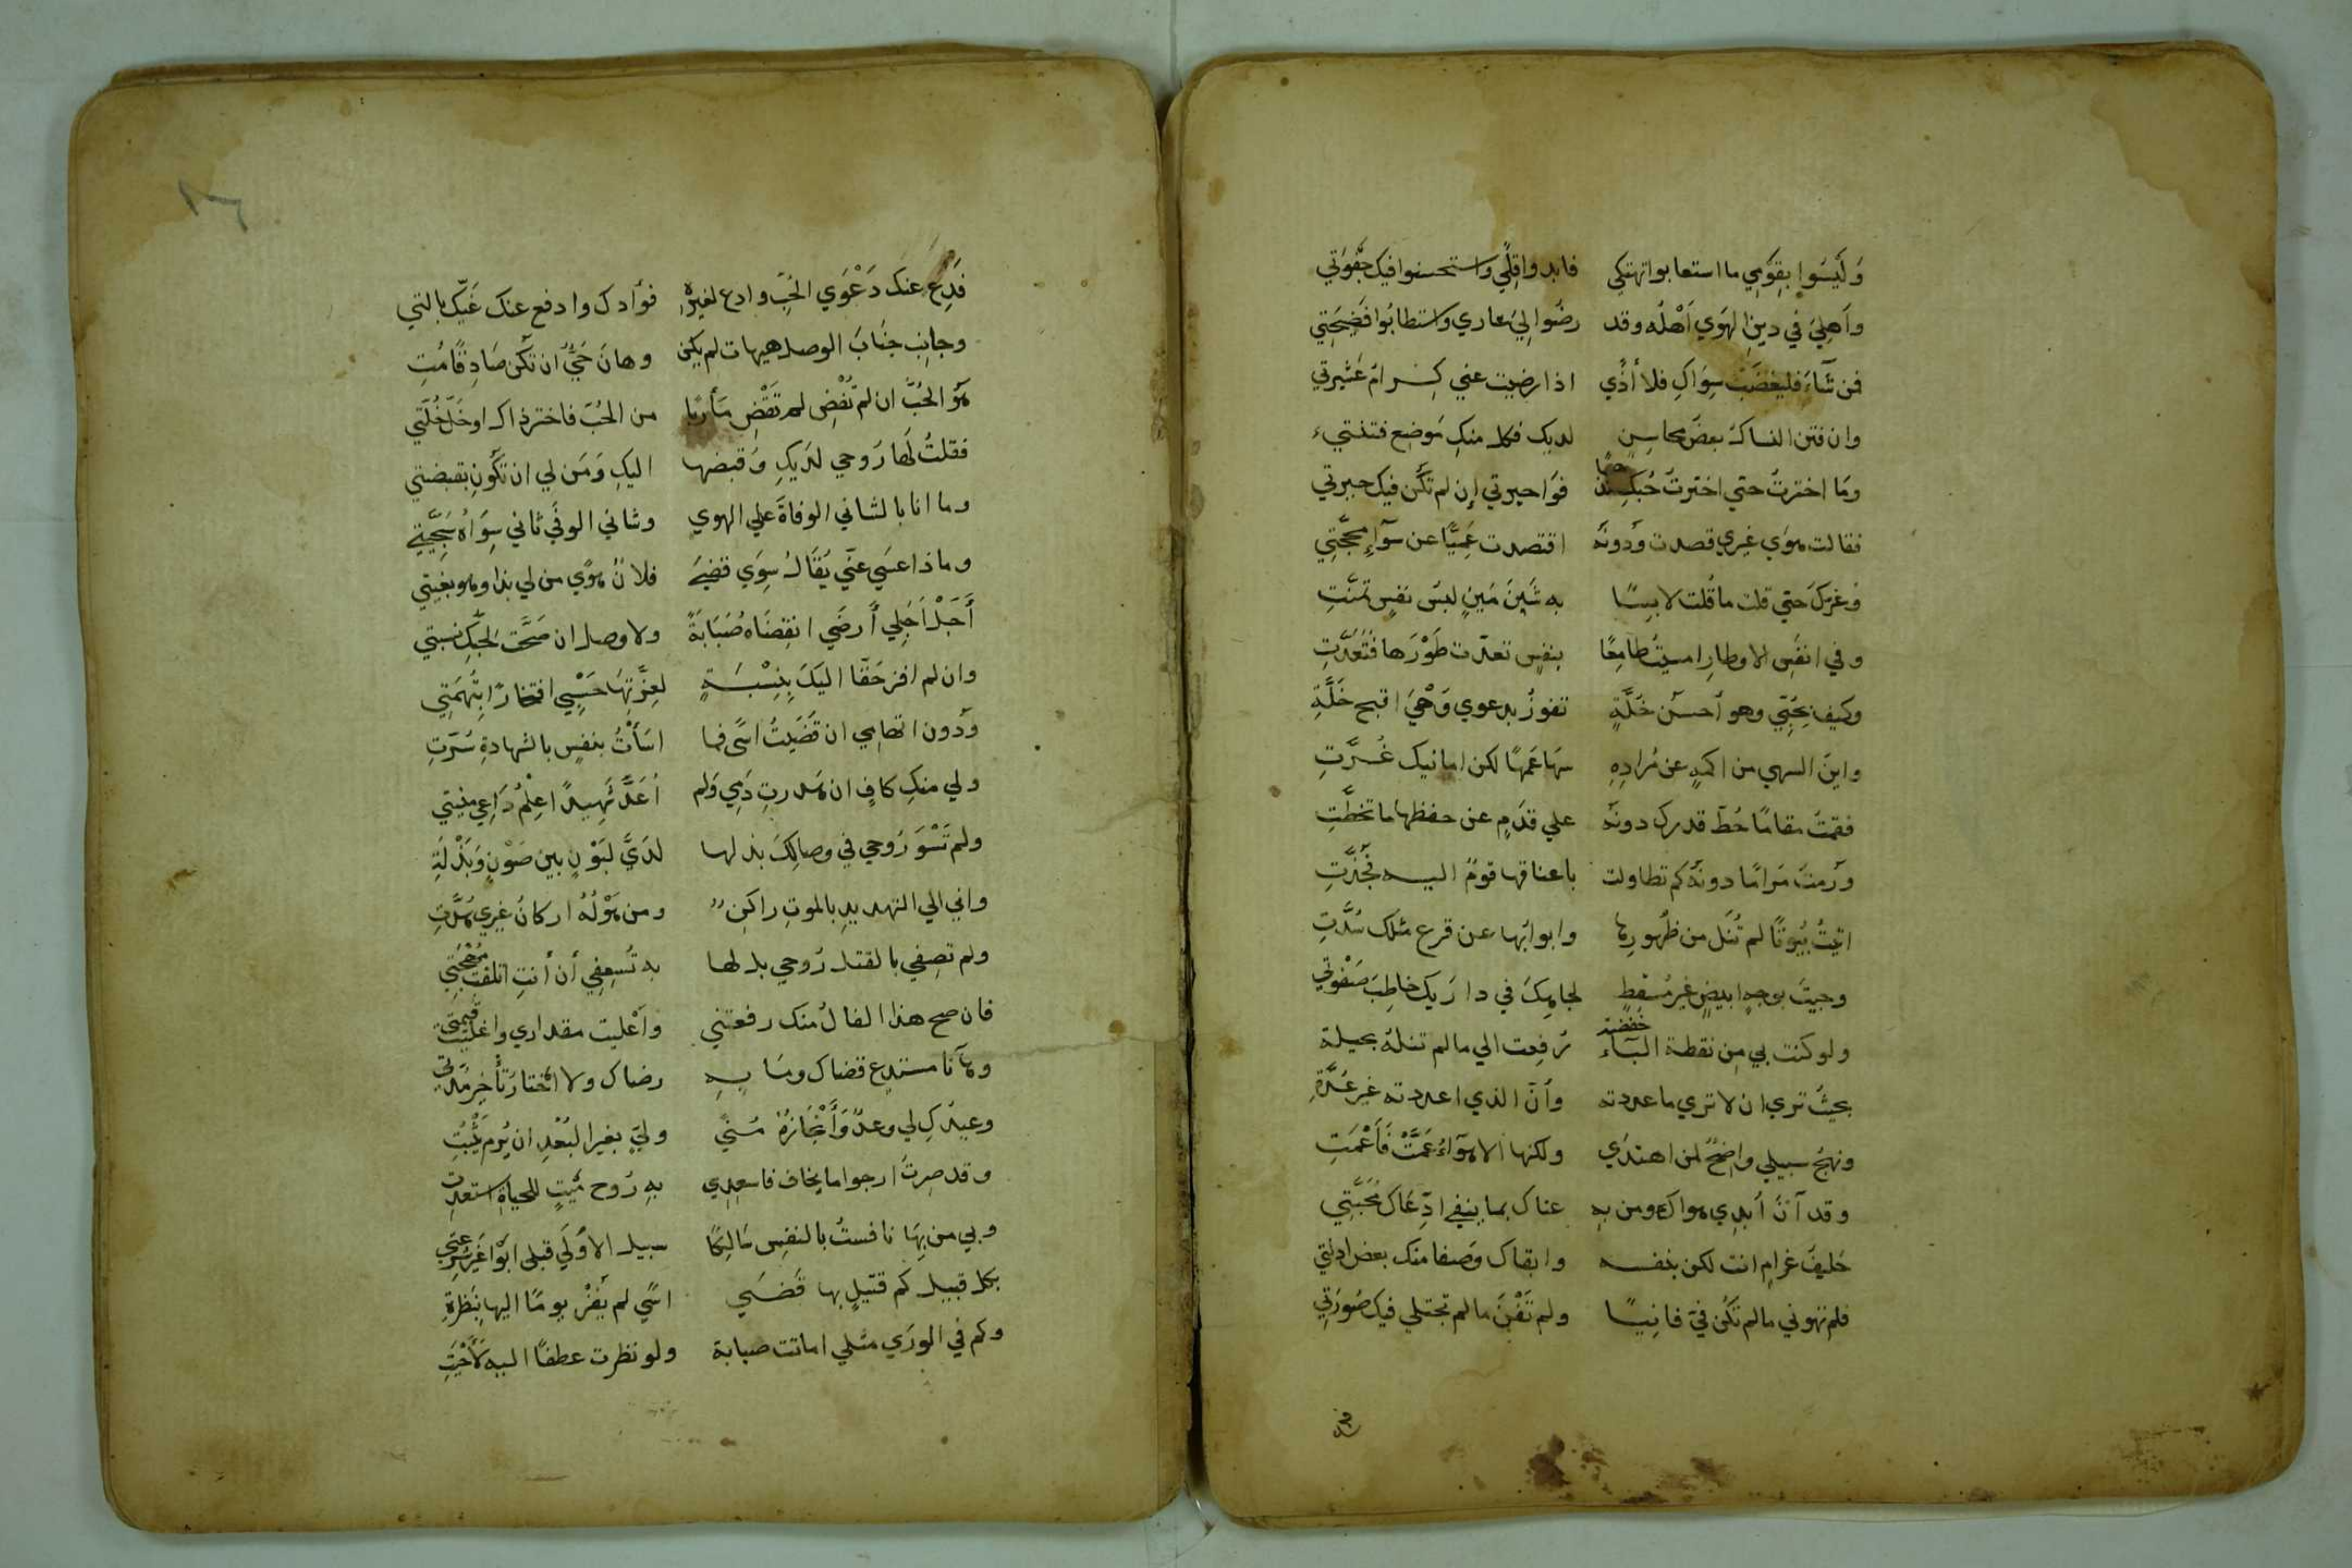 وَلَيْسَوا بِقَوْمِي ما استعابوا تهتكي فابدوا قِلًي واستحسنوا فيك جَفْوَتي
وأَهلِيَ في دينِ الهَوَي أَهْلُه وقد رضُوا لِيَ عاري واستطابُوا فَضِيحَتِي
فمن شَآءَ فليغضَبْ سِوَاكِ فلا أذًي اذا رضيت عني كِرامُ عَشِيرتي
وان فتن النساك بعضَ محاسِنٍ لديك فكل منكِ مَوضِع فتنتي
وَمَا اخترتُ حتي اخترتُ حُبكِ مذهبًا فوَا حيرتي إن لم تكن فيك حيرتي
فقالت هوَي غيري قصدت ودُونَهُ اقتصدت عَمِيًّا عن سوآءِ محجَّتِي
وغرّكَ حتي قلت ما قُلت لابِسًا به شَينَ مَينٍ لبسُ نفسٍ تمنَّتِ
وفي انفَسِ الاوطارِ امسيتُ طامِعًا بنفسٍ تعدّت طَوْرَها فتُعُدَّتِ
وكيف بحُبِّي وهو أحسنُ خَلَّةٍ تفوزُ بدعوي وَهْيَ اقبح خَلَّةِ
واينَ السهي من اكمهٍ عن مُرادِهِ سَها عَمَهًا لكن امانيك غُرَّتِ
فقمتُ مقامًا حُطّ قدرك دونَهُ علي قدَمٍ عن حفظها ما تخطَّتِ
ورُمتَ مَرامًا دونَه كم تطاولت باعناقها قومٌ اليه فجُذَّتِ
اتيتُ بُيُوتًا لم تُنَل من ظهورِها وابوابُها عن قرع مثلك سُدَّتِ
وجيتَ بوجهٍ ابيضٍ غيرَ مُسْقِطٍ لجاهِكَ في دارَيكَ خاطِبَ صَفْوَتي
ولو كنت بي مِن نقطة البَآء خفضة رُفِعت الي ما لم تنلهُ بحيلة
بحيثُ تري ان لا تري ما عددته وأنّ الذي اعددته غير عُدَّةِ
ونهجُ سبيلي واضِحٌ لمن اهتدَي ولكنها الاهوآءُ عَمَّتْ فَأَعْمَتِ
وقد آنَ أُبدِي هواكَ ومن بهِ عناك بما ينفي ادِّعَاكَ مُحَبَّتِي
حَليفُ غرامٍ انت لكن بنفسه وابقاك وَصفا منك بعض ادلتي
فلم تهوني ما لم تَكُن فيَّ فانِيًا ولم تَفْنَ ما لم تجتلي فيك صُورَتِي
فدع
١٦
فَدِعْ عنك دَعْوَي الحُبّ وادع لغيرهِ فوأدك وادفع عنك غَيّكَ بالتي
وجانِب جنَابَ الوصل هيهات لم يكن وهانَ حَيٌّ ان تكُن صَادِقًا مُتِ
هو الحُبُّ ان لم تُفْضِ لم تَقْضِ مَأربًا من الحُبّ فاختر ذاك او خَلِّ خُلَّتي
فقلتُ لَها رُوحي لديكِ وَقبضها اليكِ وَمَن لي ان تكُونِ بقبضتي
وما انا بالشاني الوفاةَ علي الهوي وشاني الوفَي ثاني سِوَاهُ سَجِيَّتي
وماذا عسَي عنّي يُقَالُ سِوَي قضي فلانٌ هوًي من لي بذا وهو بغيتي
أَجَلْ اَجَلِي أَرضَي انقِضَاه صُبَابَةً ولا وصل ان صَحَّت لحبِّكِ نسبتي
وان لم افز حَقّا اليَكَ بِنِسْبَةٍ لعِزَّتِهَا حَسْبِي افتخارًا بِتُهمَتِي
ودُون اتهامِي ان قَضَيتُ اسًي فما اسَأتُ بنفسٍ بالشهادةِ سُرّتِ
ولي منكِ كافٍ ان هَدرتِ دَمِي وَلم اُعَدّ شَهِيدًا عِلْمُ دَاعِي منيتي
ولم تَسْوَ رُوحي في وصالِكَ بذلها لدَيَّ لبَوْنٍ بين صَوْنٍ وَبِذْلَةِ
واني الي التهديدِ بالموتِ راكِنٌ ومن هَوْلِهِ اركانُ غيري هُدَّتِ
ولم تعسِفي بالقتل رُوحي بل لها به تُسعِفِي أن أنتِ اتلفت مُهْجَتِي
فان صح هذا الفالُ منك رفعتني وأعْليت مقداري واغليت قيمتي
وهآ نا مستدعٍ قضاك ومَا بهِ رضاك ولا اختارُ تأخِيرَ مُدَّتي
وعيدُكِ لي وعدٌ وَأَنْجَازُهُ مُنَي وليّ بغير البُعْدِ ان يُرمَ يُثْبُتِ
وقد صِرتُ ارجوا ما يخاف فاسعِدِي بهِ رُوحَ مَيتٍ للحياةِ استعدتِ
وبي من بِهَا نافستُ بالنفسِ سَالِكًا سبيل الأُولَي قبلي ابَوْا غَيرَ شِرعَتي
بكل قبيل كم قتيلٍ بها قَضَي اسًي لم يَفُزْ يومًا اليها بِنَظرةِ
وكم في الورَي مثلي اماتت صبابة ولو نظرت عطفًا اليه لَأَحْيَتِ